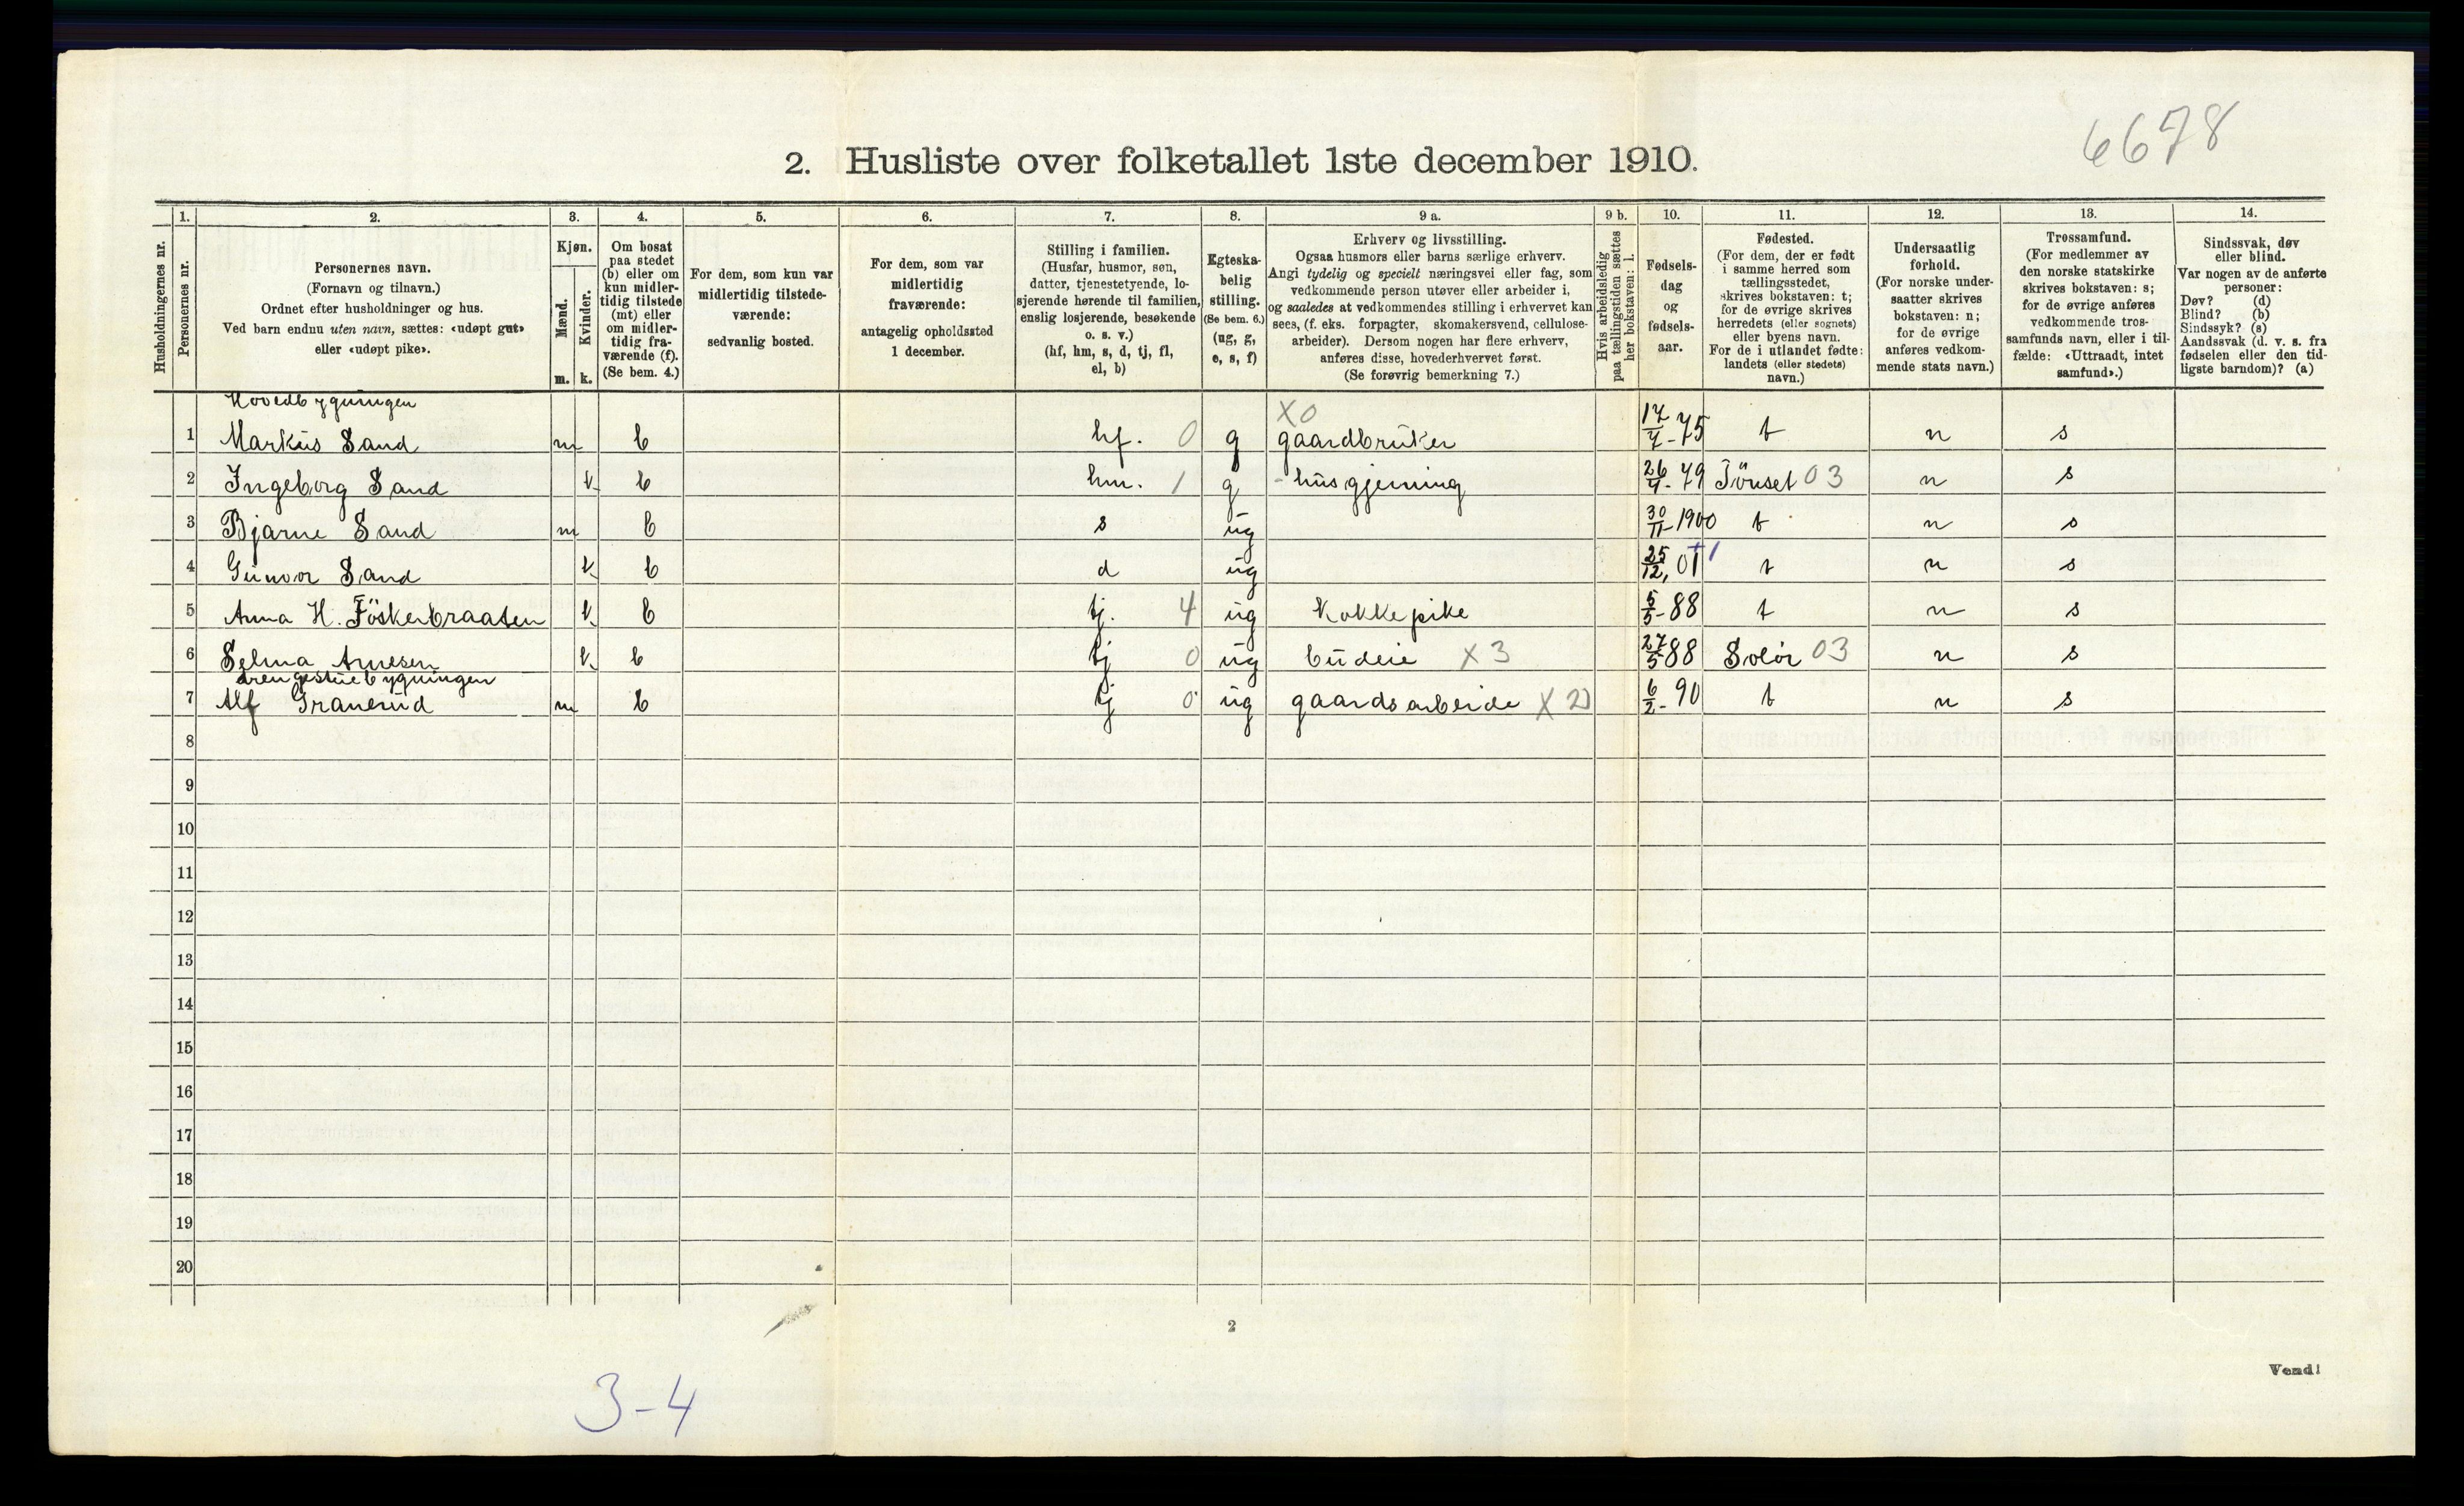 6678
2. Husliste over folketallet 1ste december 1910.
Husholdningernes nr.
1.
Personernes nr.
2.
Personernes navn.
(Fornavn og tilnavn.)
Ordnet efter husholdninger og hus.
Ved barn endnu uten navn, sættes: «udøpt gut»
eller «udøpt pike».
3.
Kjøn.
Mænd.
Kvinder.
m. k.
4.
Om bosat
paa stedet
(b) eller om
kun midler-
tidig tilstede
(mt) eller
om midler-
tidig fra-
værende (f).
(Se bem. 4.)
5.
For dem, som kun var
midlertidig tilstede-
værende:
sedvanlig bosted.
6.
For dem, som var
midlertidig
fraværende:
antagelig opholdssted
1 december.
7.
Stilling i familien.
(Husfar, husmor, søn,
datter, tjenestetyende, lo-
sjerende hørende til familien,
enslig losjerende, besøkende
o. s. v.)
(hf, hm, s, d, tj, fl,
el, b)
8.
Egteska-
belig
stilling.
(Se bem. 6.)
(ug, g,
e, s, f)
9 a.
Erhverv og livsstilling.
Ogsaa husmors eller barns særlige erhverv.
Angi tydelig og specielt næringsvei eller fag, som
vedkommende person utøver eller arbeider i,
og saaledes at vedkommendes stilling i erhvervet kan
sees, (f. eks. forpagter, skomakersvend, cellulose-
arbeider). Dersom nogen har flere erhverv,
anføres disse, hovederhvervet først.
(Se forøvrig bemerkning 7.)
9 b.
Hvis arbeidsledig
paa tællingstiden sættes
her bokstaven: l.
10.
Fødsels-
dag
og
fødsels-
aar.
11.
Fødested.
(For dem, der er født
i samme herred som
tællingsstedet,
skrives bokstaven: t;
for de øvrige skrives
herredets (eller sognets)
eller byens navn.
For de i utlandet fødte:
landets (eller stedets)
navn.)
12.
Undersaatlig
forhold.
(For norske under-
saatter skrives
bokstaven: n;
for de øvrige
anføres vedkom-
mende stats navn.)
13.
Trossamfund.
(For medlemmer av
den norske statskirke
skrives bokstaven: s;
for de øvrige anføres
vedkommende tros-
samfunds navn, eller i til-
fælde: «Uttraadt, intet
samfund».)
14.
Sindssvak, døv
eller blind.
Var nogen av de anførte
personer:
Døv? (d)
Blind? (b)
Sindssyk? (s)
Aandssvak (d. v. s. fra
fødselen eller den tid-
ligste barndom)? (a)
Hovedbygningen
1 Markus Sand m b hf. 0 g X0 gaardbruker 17/7-75 t n s
2 Ingeborg Sand k b hm. 1 g - husgjerning 26/4-79 Tönset 03 n s
3 Bjarne Sand m b s ug 30/11-1900 t n s
4 Gunvor Sand k b d ug 25/12, 01 +1 t n s
5 Anna H. Föskerbraaten k b tj. 4 ug Kokkepike 5/5-88 t n s
6 Selma Arnesen k b tj 0 ug budeie X3 27/5 88 Solör 03 n s
drengestuebygningen
7 Alf Granerud m b tj 0 ug gaardsarbeide X2 6/2-90 t n s
8
9
10
11
12
13
14
15
16
17
18
19
20
2
Vend!
3-4